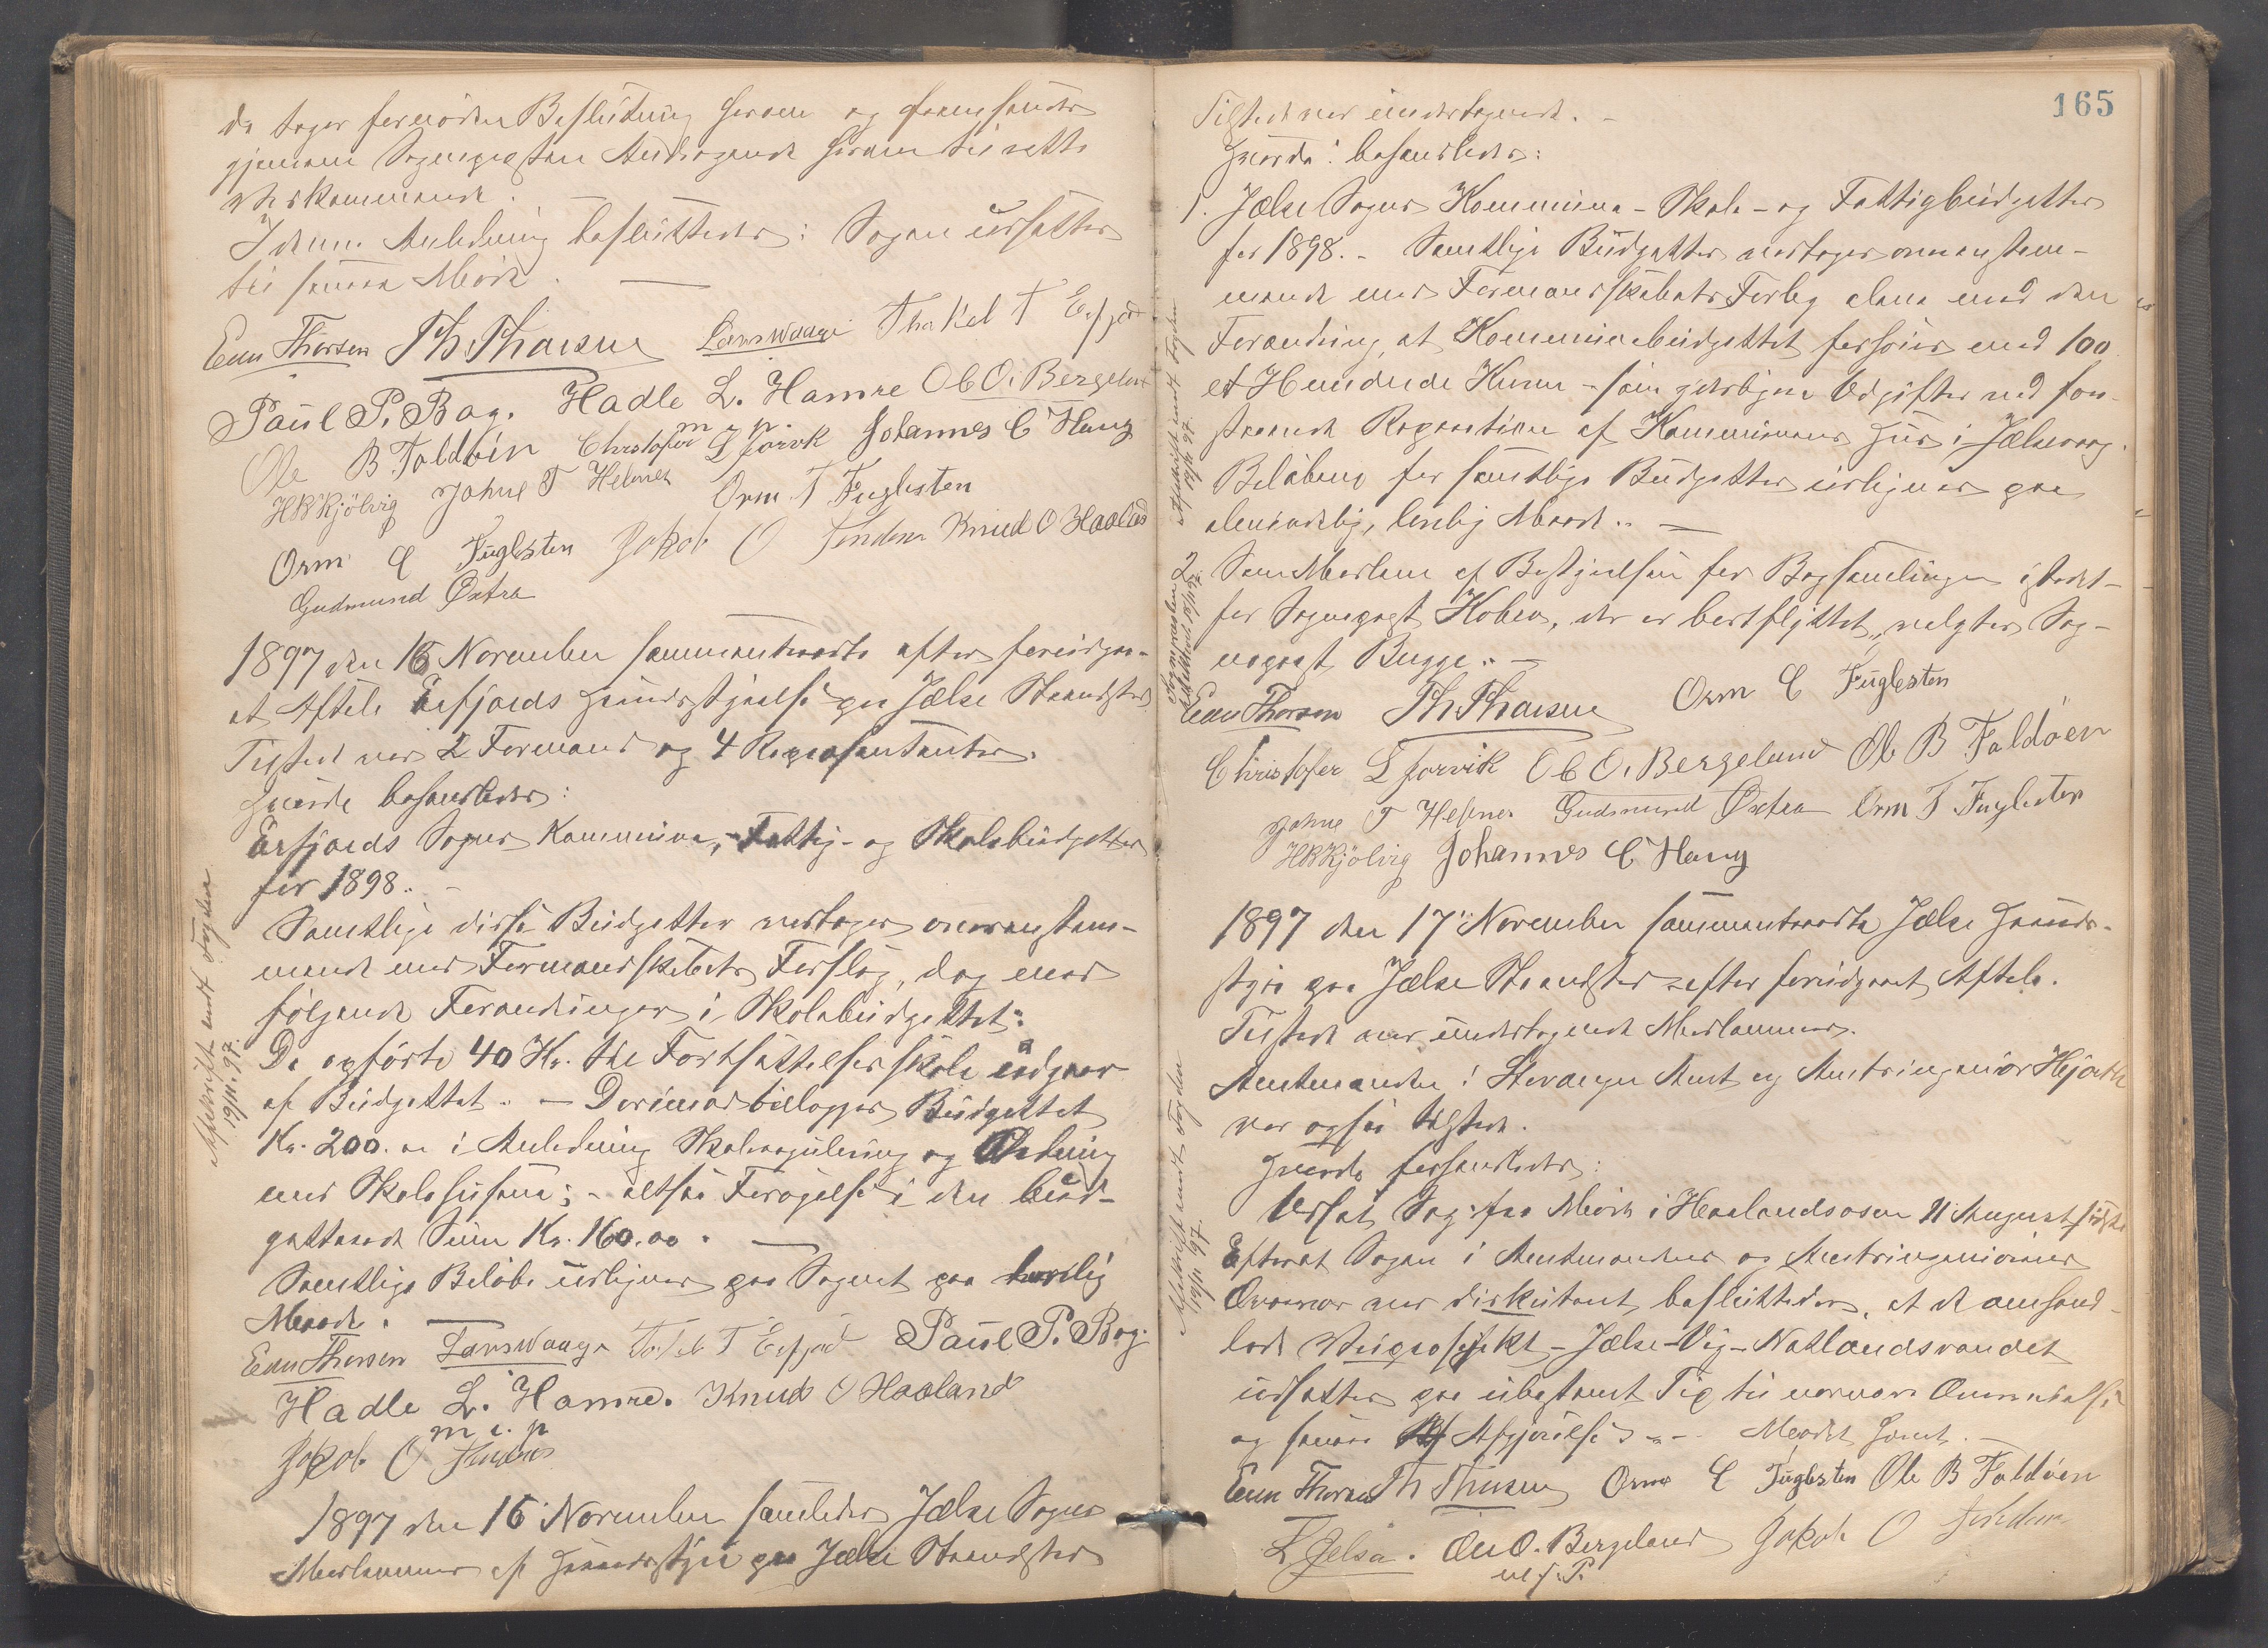 da tager fornöden Beslutning herom og fremsender
gjennem Sognepresten Andragende herom til rette
vedkommende.
I denne Anledning besluttedes: Sagen udsættes
til senere Möde.
Edm Thorsen Th. Thorsen Lars Waage Thorkel T Erfjord
Paul P. Bog. Hadle L. Hamre Ole O. Bergeland
m. p.
Ole B Foldöen Christofer L Jorvik Johannes C Haug
HRKjölvig Johne T Helnes Orm T Fuglesten
Orm C Fuglesten Jakob O Sendenes Knud O Haaland
Gudmund Öxtra
1897 den 16 November sammentraadte efter forudgaa-
et Aftale Erfjords Herredsstyrelse paa Jælse Strandsted
Tilstede var 2 Formænd og 4 Repræsentanter.
Hvorda behandledes:
Erfjords Sogns Kommune, Fattig- og Skolebudgetter
for 1898.
Samtlige disse Budgetter vedtoges overensstem-
mende med Formandskabets Forslag, dog med
følgende Forandringer i Skolebudgettet:
De opførte 40 Kr. til Fortsættelsesskole udgaar
af Budgettet. — Derimod tillægges Budgettet
Kr. 200.00 i Anledning Skoleregulering og Ordning
med Skolehusene; - altsaa Forøgelse i den bud-
getterede Sum Kr. 160.00.
Samtlige Beløbe udlignes paa Sognet paa lovlig
Maade.
Edm Thorsen Lars Waage Torkel T Erfjord Paul P. Bog.
Hadle L. Hamre. Knud O Haaland
m. p.
Jakob O Sendenes
1897 den 16 November samledes Jælse Sogns
Medlemmer af Herredsstyre paa Jælse Strandsted
Afskrift sendt Fogden
19/11. 97.
165
Tilstede var undertegnede.
Hvorda behandledes:
1. Jælse Sogns Kommune- Skole- og Fattigbudgetter
for 1898. - Samtlige Budgetter vedtoges overensstem-
mende med Formandskabets Forlæg alene med den
Forandring, at Kommunebudgettet forhöies med 100
et Hundrede Kroner - som yderligere Udgifter ved fore-
staaende Reparation af Kommunens Hus i Jælsevaag.
Beløbene for samtlige Budgetter udlignes paa
almindelig, lovlig Maade.
2. Som Medlem af Bestyrelsen for Bogsamlingen istedet-
for Sogneprest Koren, der er bortflyttet, valgtes Sog-
neprest Bugge.
Edm Thorsen Th. Thorsen Orm C Fuglesten
Christofer L Jorvik Ole O. Bergeland Ole B Foldöen
Johne T Helnes Gudmund Öxtra Orm T Fuglesten
HRKjölvig Johannes C Haug
1897 den 17 November sammentraadte Jælse Herreds-
styre paa Jælse Strandsted efter forudgaaet Aftale.
Tilstede var undertegnede Medlemmer.
Amtmanden i Stavanger Amt og Amtsingeniör Hjorth
var også tilstede.
Hvorda forhandledes:
Udsat Sag fra Möde i Haalandsosen 11 August sidste
Efterat Sagen i Amtmandens og Amtsingeniörens
Overvær var diskuteret, besluttedes, at det omhand-
lede Veiprosjekt - Jælse-Vig-Natlandsvandet
udsættes paa ubestemt Tid til nærmere Overveielse
og senere Afgjörelse. - Mödet hævet.
Edm Thorsen Th Thorsen Orm C Fuglesten Ole B Foldöen
L Jelsa. Ole O. Bergeland Jakob O Sendenes
m. f. P.
Afskrift sendt Fogden
19/11 97.
Afskrift sendt Fogden
19/11 97.